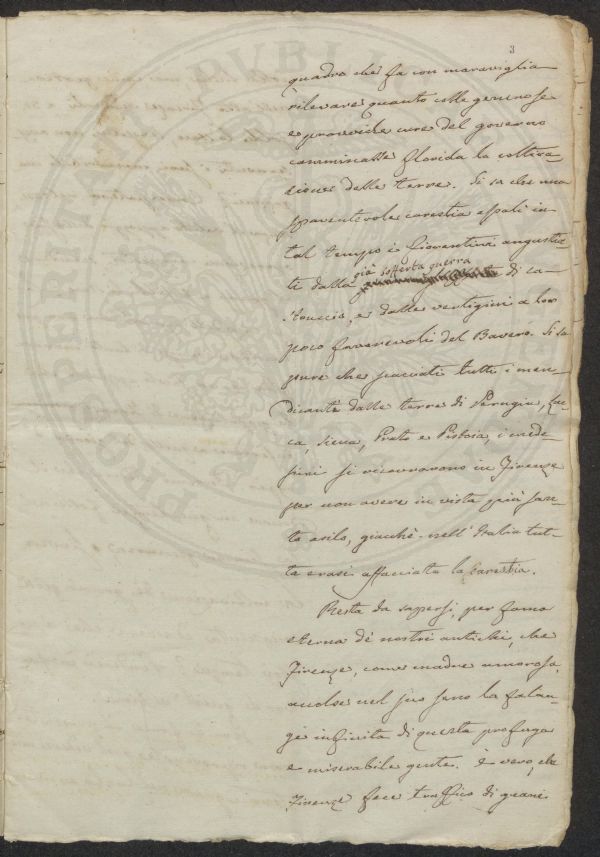 3
quadro che fa con maraviglia
rilevare quanto colle generose
e provvide cure del governo
camminasse florida la coltiva-
zione delle terre. Si sa che una
spaventevole carestia assalì in
tal tempo i Fiorentini angustia-
ti dalla già sofferta guerra di Ca-
struccio, e dalle vertigini a loro
poco favorevoli del Bavero. Si sa
pure che scacciati tutti i men-
dicanti dalle terre di Perugia, Luc-
ca, Siena, Prato e Pistoia, i mede-
simi si ricovrarono in Firenze
per non avere in vista più sacro-
to asilo, giacchè nell'Italia tut-
ta erasi affacciata la Carestia.
Resta da sapersi, per fama
eterna de' nostri antichi, che
Firenze, come madre amorosa,
accolse nel suo seno la falan-
ge infinita di questa profuga
e miserabile gente. È vero, che
Firenze fece traffico di grani.
PROSPERITATI PUBLICAE